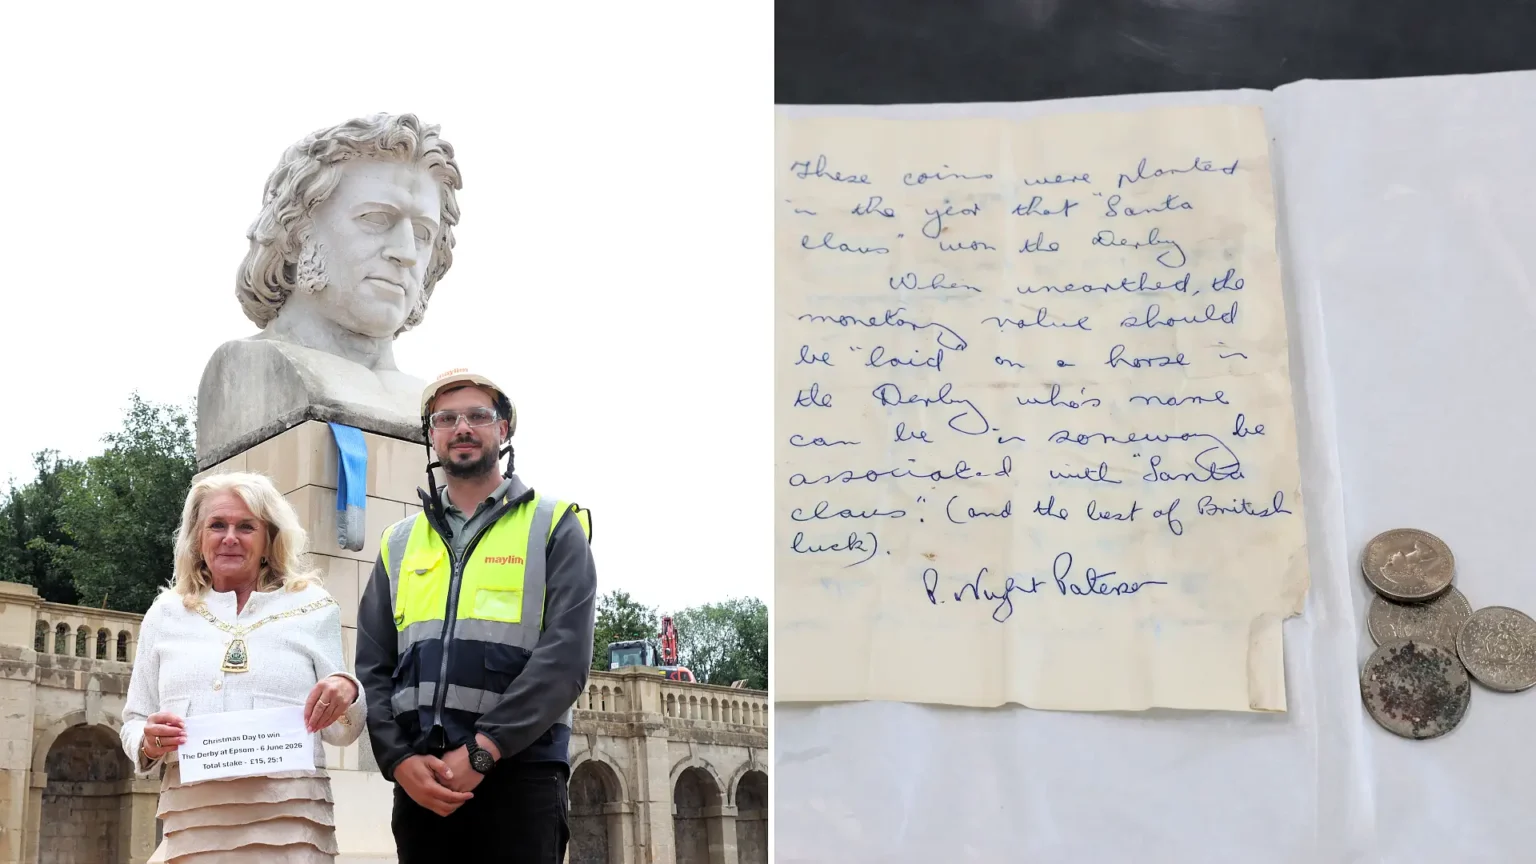 maylim
maylim
Christmas Day to win
The Derby at Epsom - 6 June 2026
Total stake - £15, 25:1
These coins were planted
in the year that "Santa
Claus" won the Derby
When unearthed, the
monetary value should
be "laid" on a horse in
the Derby who's name
can be in someway be
associated with "Santa
Claus". (and the best of British
luck).